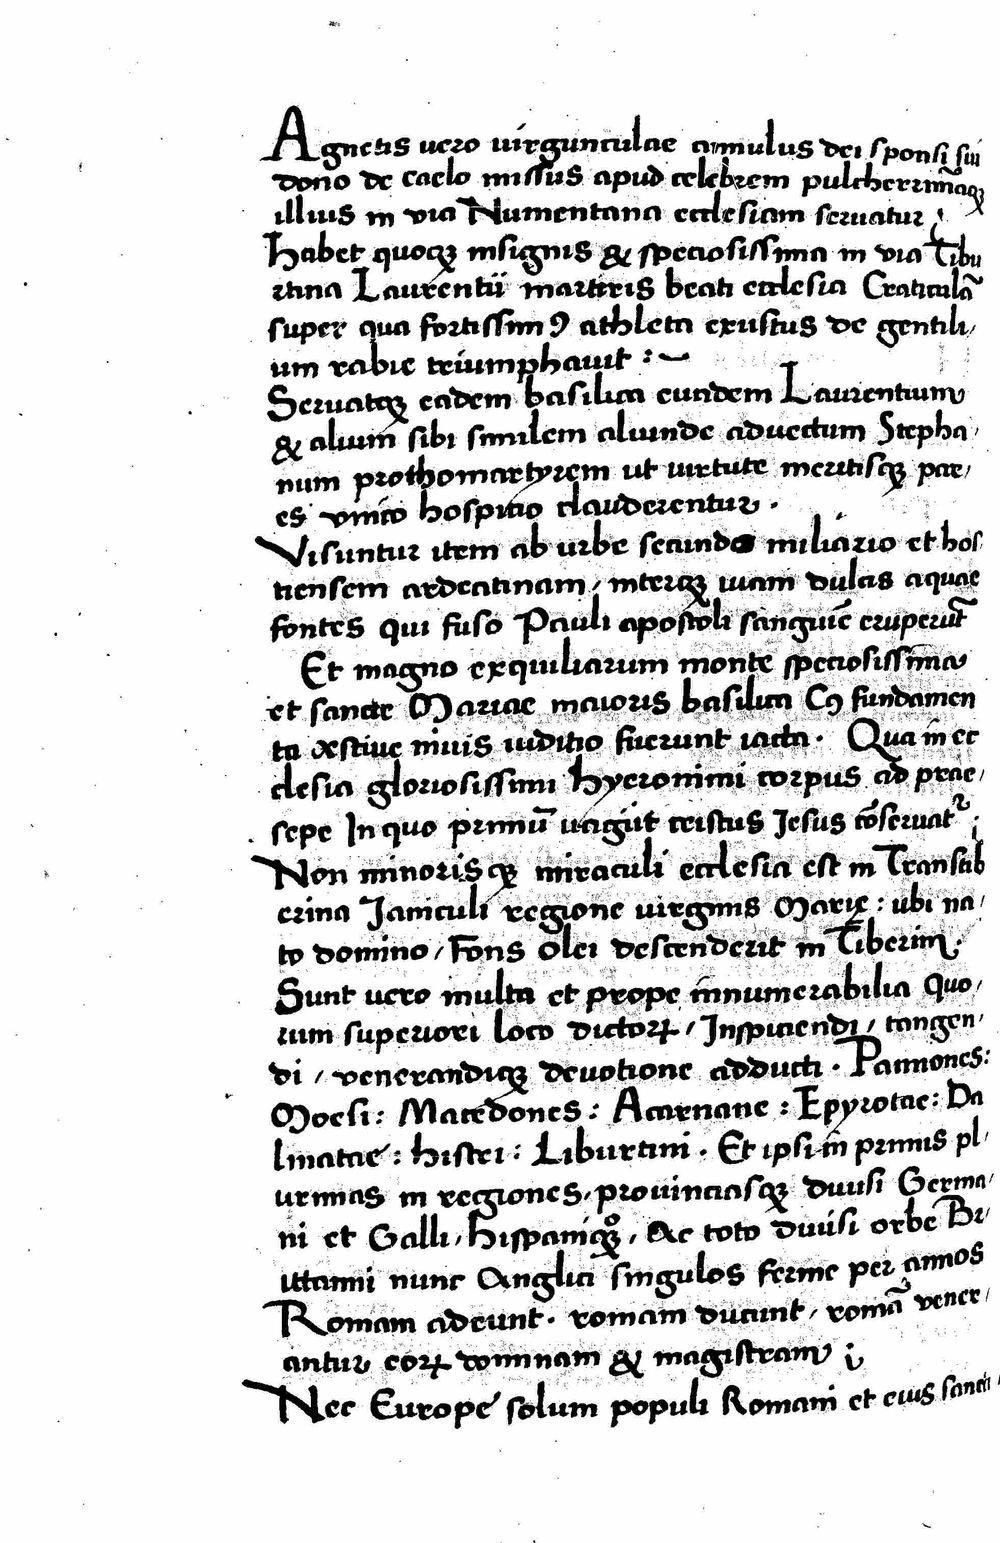 Agnetis uero uirgunculae annulus dei sponsi sui
dono de caelo missus apud celebrem pulcherrimãqꝫ
illius in via Numentana ecclesiam seruatur ;
Habet quoqꝫ insignis & speciosissima in via Tibu
rtina Laurentii martiris beati ecclesia Craticulã
super qua fortissimꝰ athleta exustus de gentili/
um rabie triumphauit :~
Seruatqꝫ eadem basilica eundem Laurentium
& alium sibi similem aliunde aduectum Stepha/
num prothomartyrem ut uirtute meritisqꝫ par/
es unico hospitio clauderentur .
Visuntur item ab urbe secundo miliario et hos
tiensem ardeatinam / interqꝫ uiam dulcis aquae
fontes qui fuso Pauli apostoli sanguīe eruperūt
Et magno exquiliarum monte speciosissima
et sancte Mariae maioris basilica Cꝯ fundamen
ta æstiue niuis iuditio fuerunt iacta . Qua in ec
clesia gloriosissimi hyeronimi corpus ad prae/
sepe In quo primū uagiit cristus Jesus cōseruatr ;
Non minorisqꝫ miraculi ecclesia est in Transtib
erina Janiculi regione uirginis Marię : ubi na/
to domino / Fons olei descenderit in Tiberim .
Sunt uero multa et prope innumerabilia quo/
rum superiori loco dictoꝝ / Inspiciendi / tangen/
di / venerandiqꝫ deuotione adducti . Pannones :
Moesi : Macedones : Acarnane : Epyrotae : Da
lmatae : histri : Liburtini . Et ipsi in primis pl/
urimas in regiones / prouinciasqꝫ diuisi Germa/
ni et Galli / hispaniqꝫ / Ac toto diuisi orbe Br/
ittanni nunc Anglici singulos ferme per annos
Romam adeunt . romam ducunt / romā vener/
antur eoꝝ dominam & magistram ;
Nec Europe solum populi Romam et eius sancti/